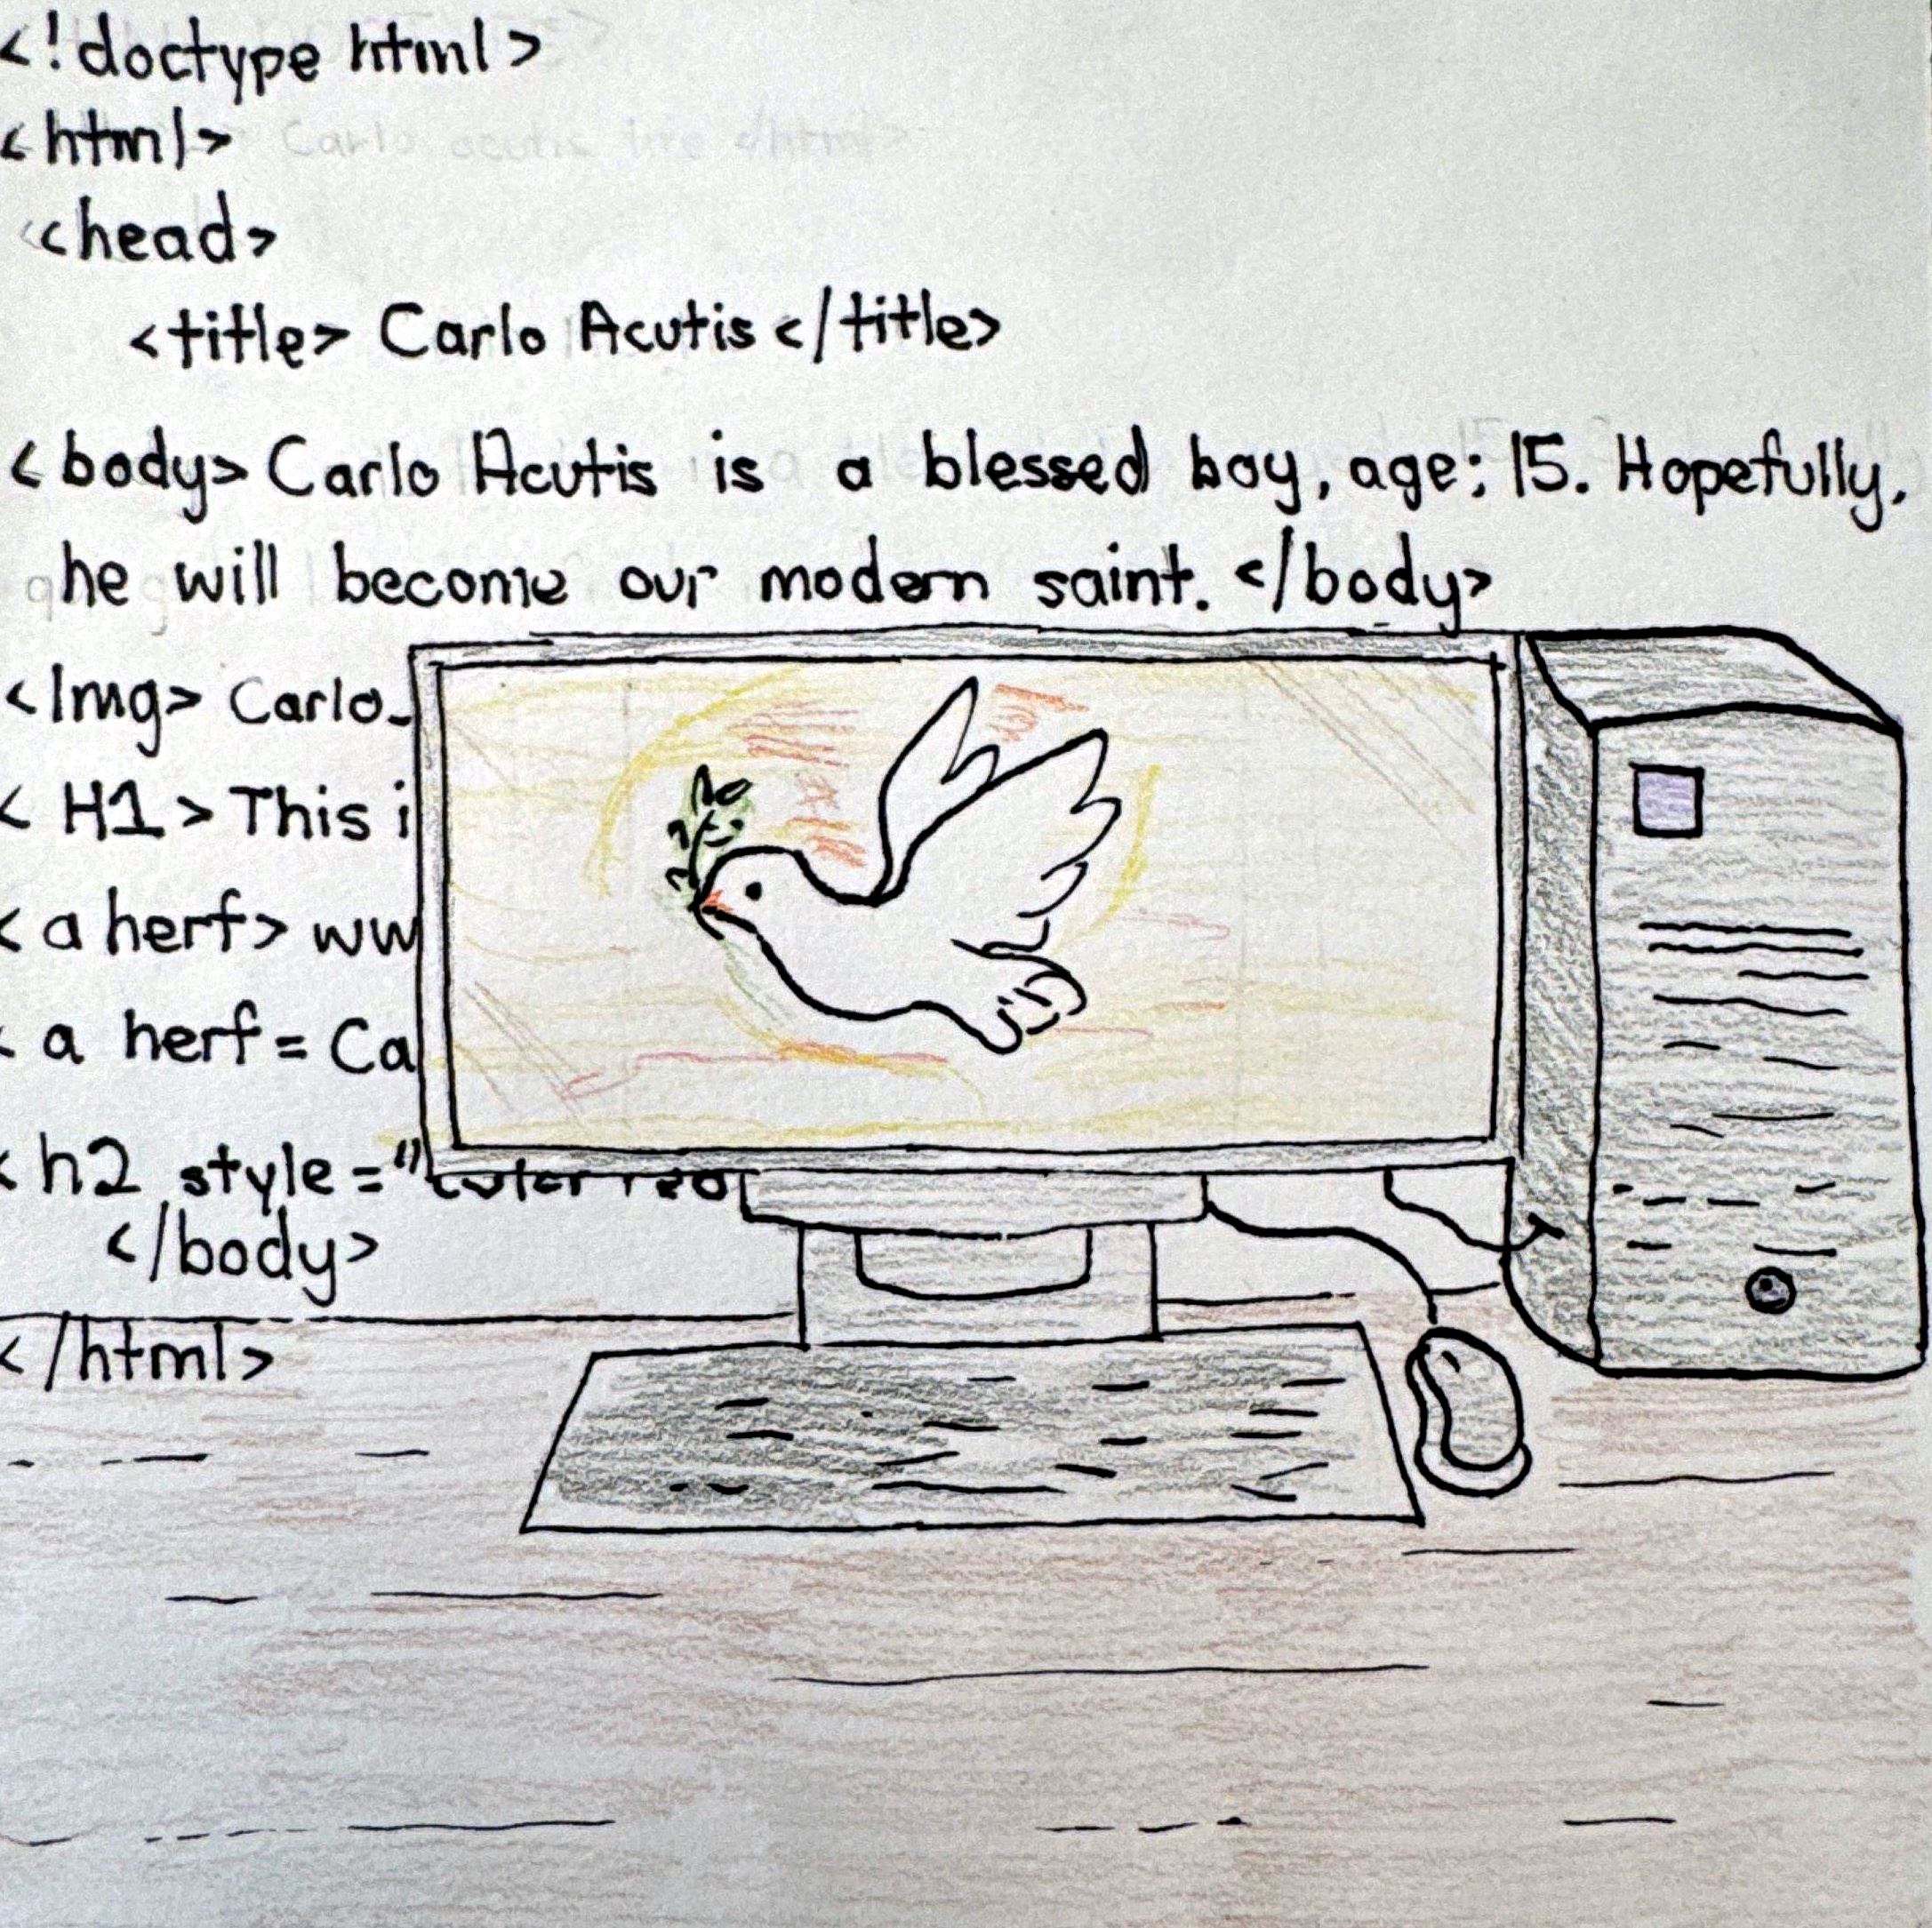 <!doctype html>
<html>
<head>
<title> Carlo Acutis </title>
<body> Carlo Acutis is a blessed boy, age; 15. Hopefully,
he will become our modern saint. </body>
<Img> Carlo_
< H1 > This i
< a herf> ww
< a herf = Ca
< h2 style = "color red
</body>
</html>